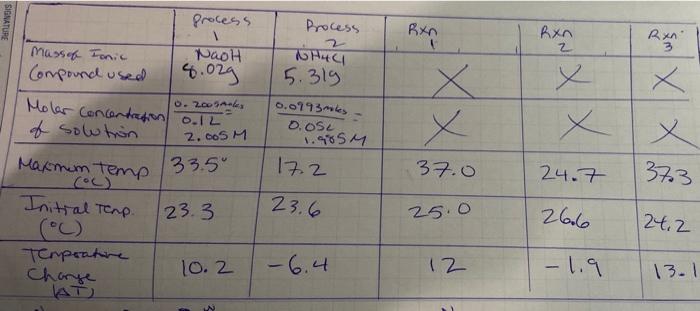 SIGNATURE
Process 1 Process 2 Rxn 1 Rxn 2 Rxn 3
Mass of Ionic Compound used NaOH 8.02g NH4Cl 5.31g X X X
Molar Concentration of Solution 0.2005moles = 0.0993moles = X X X
0.1L 0.05L
2.005M 1.985M
Maximum Temp (°C) 33.5° 17.2 37.0 24.7 37.3
Initial Temp. (°C) 23.3 23.6 25.0 26.6 24.2
Temperature Change (ΔT) 10.2 -6.4 12 -1.9 13.1